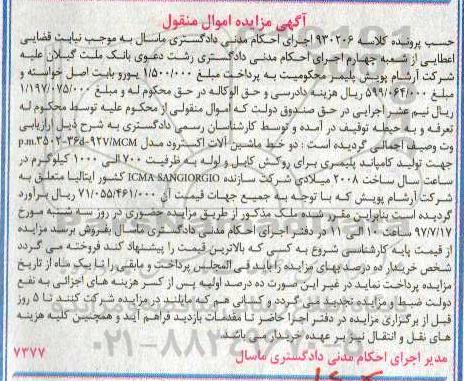 آگهی مزایده اموال منقول
حسب پرونده کلاسه ۹۳۰۲۰۶ اجرای احکام مدنی دادگستری ماسال به موجب نیابت قضایی
اعطایی از شعبه چهارم اجرای احکام مدنی دادگستری رشت دعوی بانک ملت گیلان علیه
شرکت آرشام پویش پلیمر محکومیت به پرداخت مبلغ ۱/۵۰۰/۰۰۰ یورو بابت اصل خواسته و
مبلغ ۵۹۹/۰۶۴/۰۰۰ ریال هزینه دادرسی و حق الوکاله در حق محکوم له و مبلغ ۱/۱۹۷/۰۷۵/۰۰۰
ریال نیم عشر اجرایی در حق صندوق دولت که اموال منقولی از محکوم علیه توسط محکوم له
تعرفه و به حیطه توقیف در آمده و توسط کارشناسان رسمی دادگستری به شرح ذیل ارزیابی
وت وصیف اجمالی گردیده است : دو خط ماشین آلات اکسترود مدل p.m.۳۵۰۲-۳۶d-۹۲V/MCM
جهت تولید کامپاند پلیمری برای روکش کابل و لوله به ظرفیت ۷۰۰ الی ۱۰۰۰ کیلوگرم در
ساعت سال ساخت ۲۰۰۸ میلادی شرکت سازنده ICMA SANGIORGIO کشور ایتالیا متعلق به
شرکت آرشام پویش که با توجه به جمیع جهات قیمت آن ۷۱/۰۵۵/۴۶۱/۰۰۰ ریال برآورد
گردیده است بنابراین مقرر شده ملک مذکور از طریق مزایده حضوری در روز سه شنبه مورخ
۹۷/۷/۱۷ ساعت ۱۰ الی ۱۱ در دفتر اجرای احکام مدنی دادگستری ماسال بفروش برسد مزایده
از قیمت پایه کارشناسی شروع به کسی که بالاترین قیمت را پیشنهاد کند فروخته می گردد
شخص خریدار ده درصد بهای مزایده را باید فی المجلس پرداخت و مابقی را تا یک ماه از تاریخ
مزایده پرداخت نماید در غیر این صورت ده درصد اولیه پس از کسر هزینه های اجرائی به نفع
دولت ضبط و مزایده تجدید می گردد و کسانی هم که مایلند در مزایده شرکت کنند تا ۵ روز
قبل از برگزاری مزایده در دفتر اجرا حاضر تا مقدمات بازدید فراهم آید و همچنین کلیه هزینه
های نقل و انتقال نیز بر عهده خریدار می باشد.
مدیر اجرای احکام مدنی دادگستری ماسال
۷۳۷۷